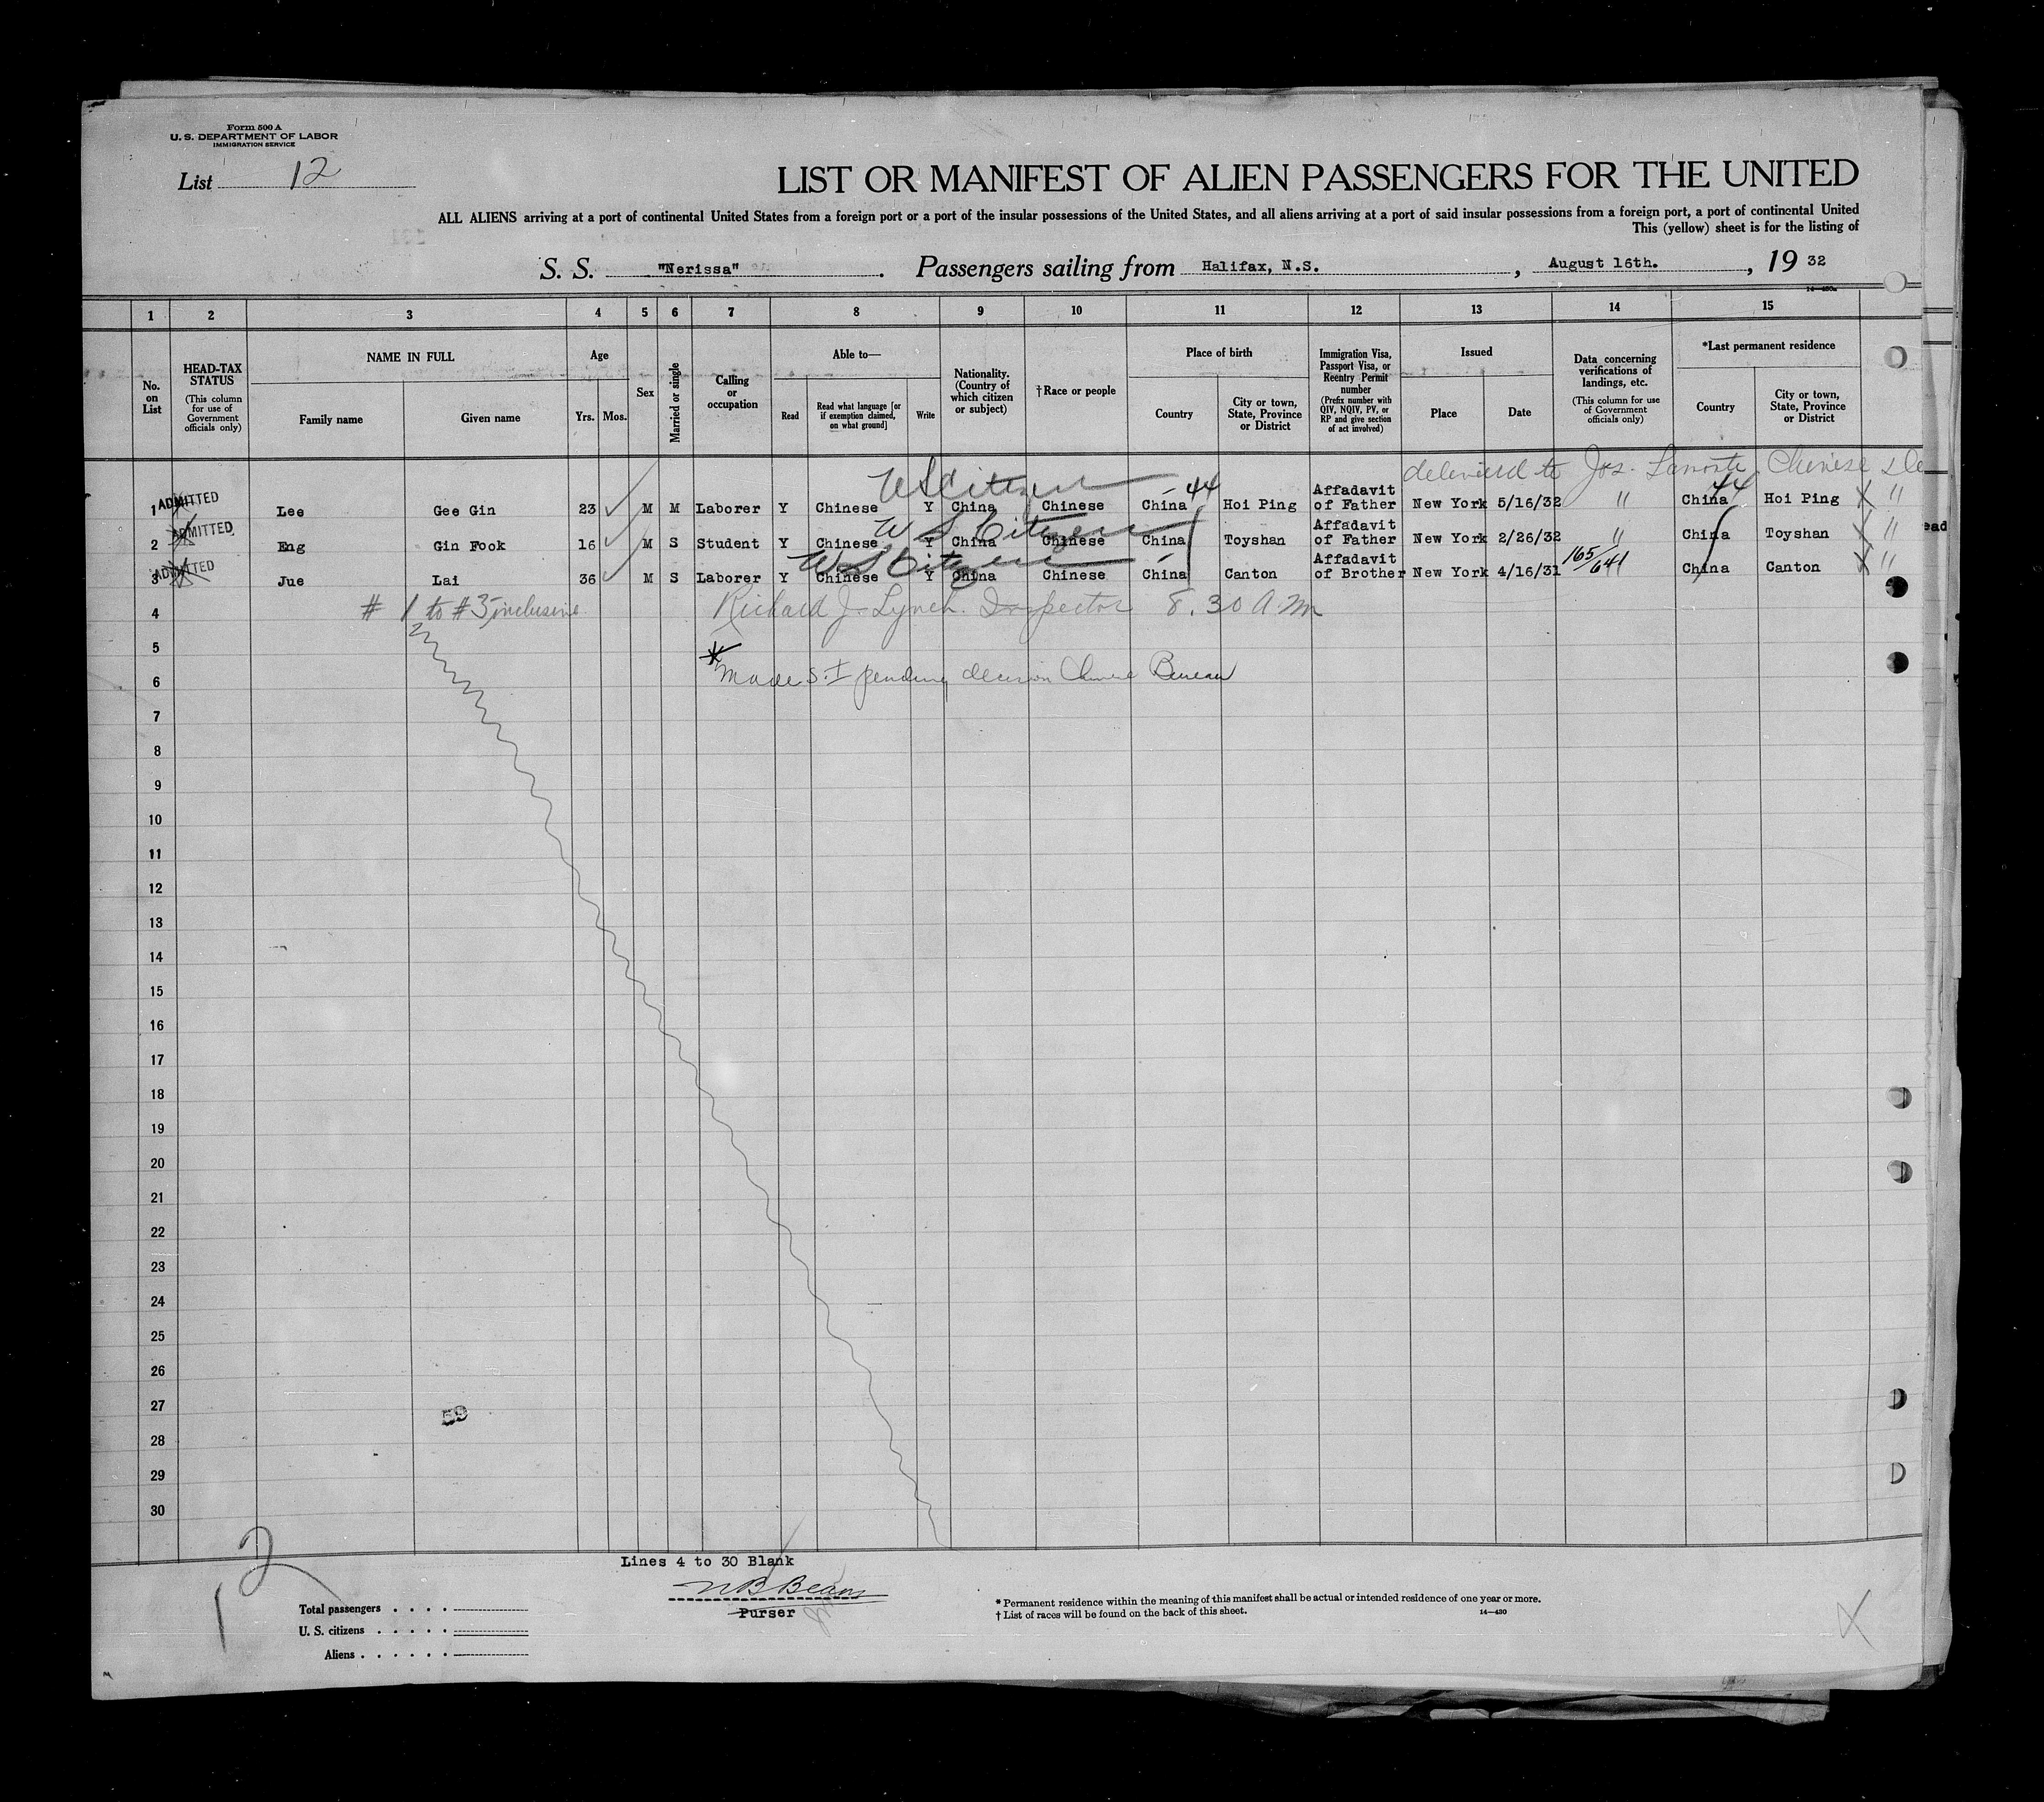 Form 500 A
U. S. DEPARTMENT OF LABOR
IMMIGRATION SERVICE
List 12
LIST OR MANIFEST OF ALIEN PASSENGERS FOR THE UNITED
ALL ALIENS arriving at a port of continental United States from a foreign port or a port of the insular possessions of the United States, and all aliens arriving at a port of said insular possessions from a foreign port, a port of continental United
This (yellow) sheet is for the listing of
S. S. "Nerissa". Passengers sailing from Halifax, N.S., August 16th., 19 32
14—430a
1 2 3 4 5 6 7 8 9 10 11 12 13 14 15
No. on List
HEAD-TAX STATUS (This column for use of Government officials only)
NAME IN FULL
Family name
Given name
Age
Yrs. Mos.
Sex
Married or single
Calling or occupation
Able to—
Read
Read what language [or if exemption claimed, on what ground]
Write
Nationality. (Country of which citizen or subject)
†Race or people
Place of birth
Country
City or town, State, Province or District
Immigration Visa, Passport Visa, or Reentry Permit number (Prefix number with QIV, NQIV, PV, or RP and give section of act involved)
Issued
Place
Date
Data concerning verifications of landings, etc. (This column for use of Government officials only)
*Last permanent residence
Country
City or town, State, Province or District
delivered to Jos. Chinese
US Citizen 44 44
1 ADMITTED Lee Gee Gin 23 M M Laborer Y Chinese Y China Chinese China Hoi Ping Affadavit of Father New York 5/16/32 " China Hoi Ping X "
US Citizen
2 ADMITTED Eng Gin Fook 16 M S Student Y Chinese Y China Chinese China Toyshan Affadavit of Father New York 2/26/32 " China Toyshan X "
ead
US Citizen
3 ADMITTED Jue Lai 36 M S Laborer Y Chinese Y China Chinese China Canton Affadavit of Brother New York 4/16/31 165/641 China Canton X "
4 # 1 to # 3 inclusive Richard J. Lynch. Inspector 8.30 A.M
5
6 * Made S.I pending decision Chinese Bureau
7
8
9
10
11
12
13
14
15
16
17
18
19
20
21
22
23
24
25
26
27
59
28
29
30
2
1
Lines 4 to 30 Blank
N B Beans
Purser
Total passengers . . . .
U. S. citizens . . . . .
Aliens . . . . . .
* Permanent residence within the meaning of this manifest shall be actual or intended residence of one year or more.
† List of races will be found on the back of this sheet.
14—430
X